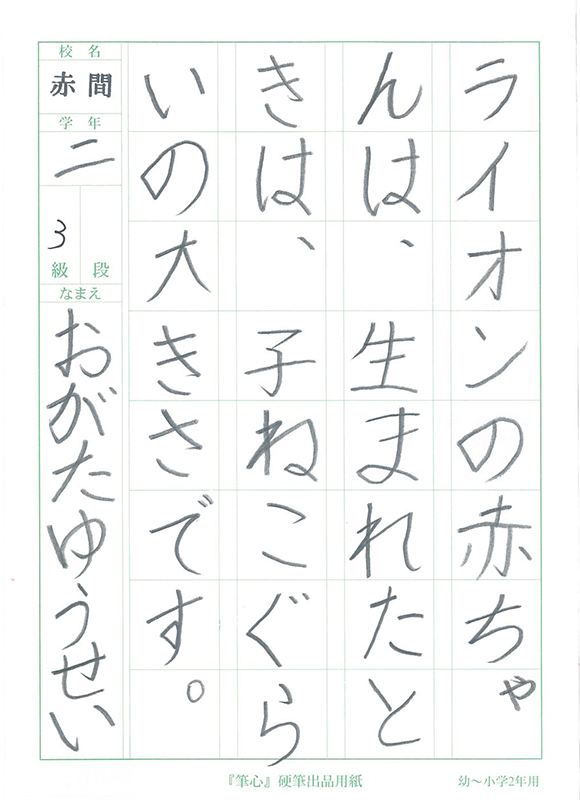 ライオンの赤ちゃ
んは、生まれたと
きは、子ねこぐら
いの大きさです。
校名
赤間
学年
二
3
級 段
なまえ
おがたゆうせい
『筆心』硬筆出品用紙
幼〜小学2年用